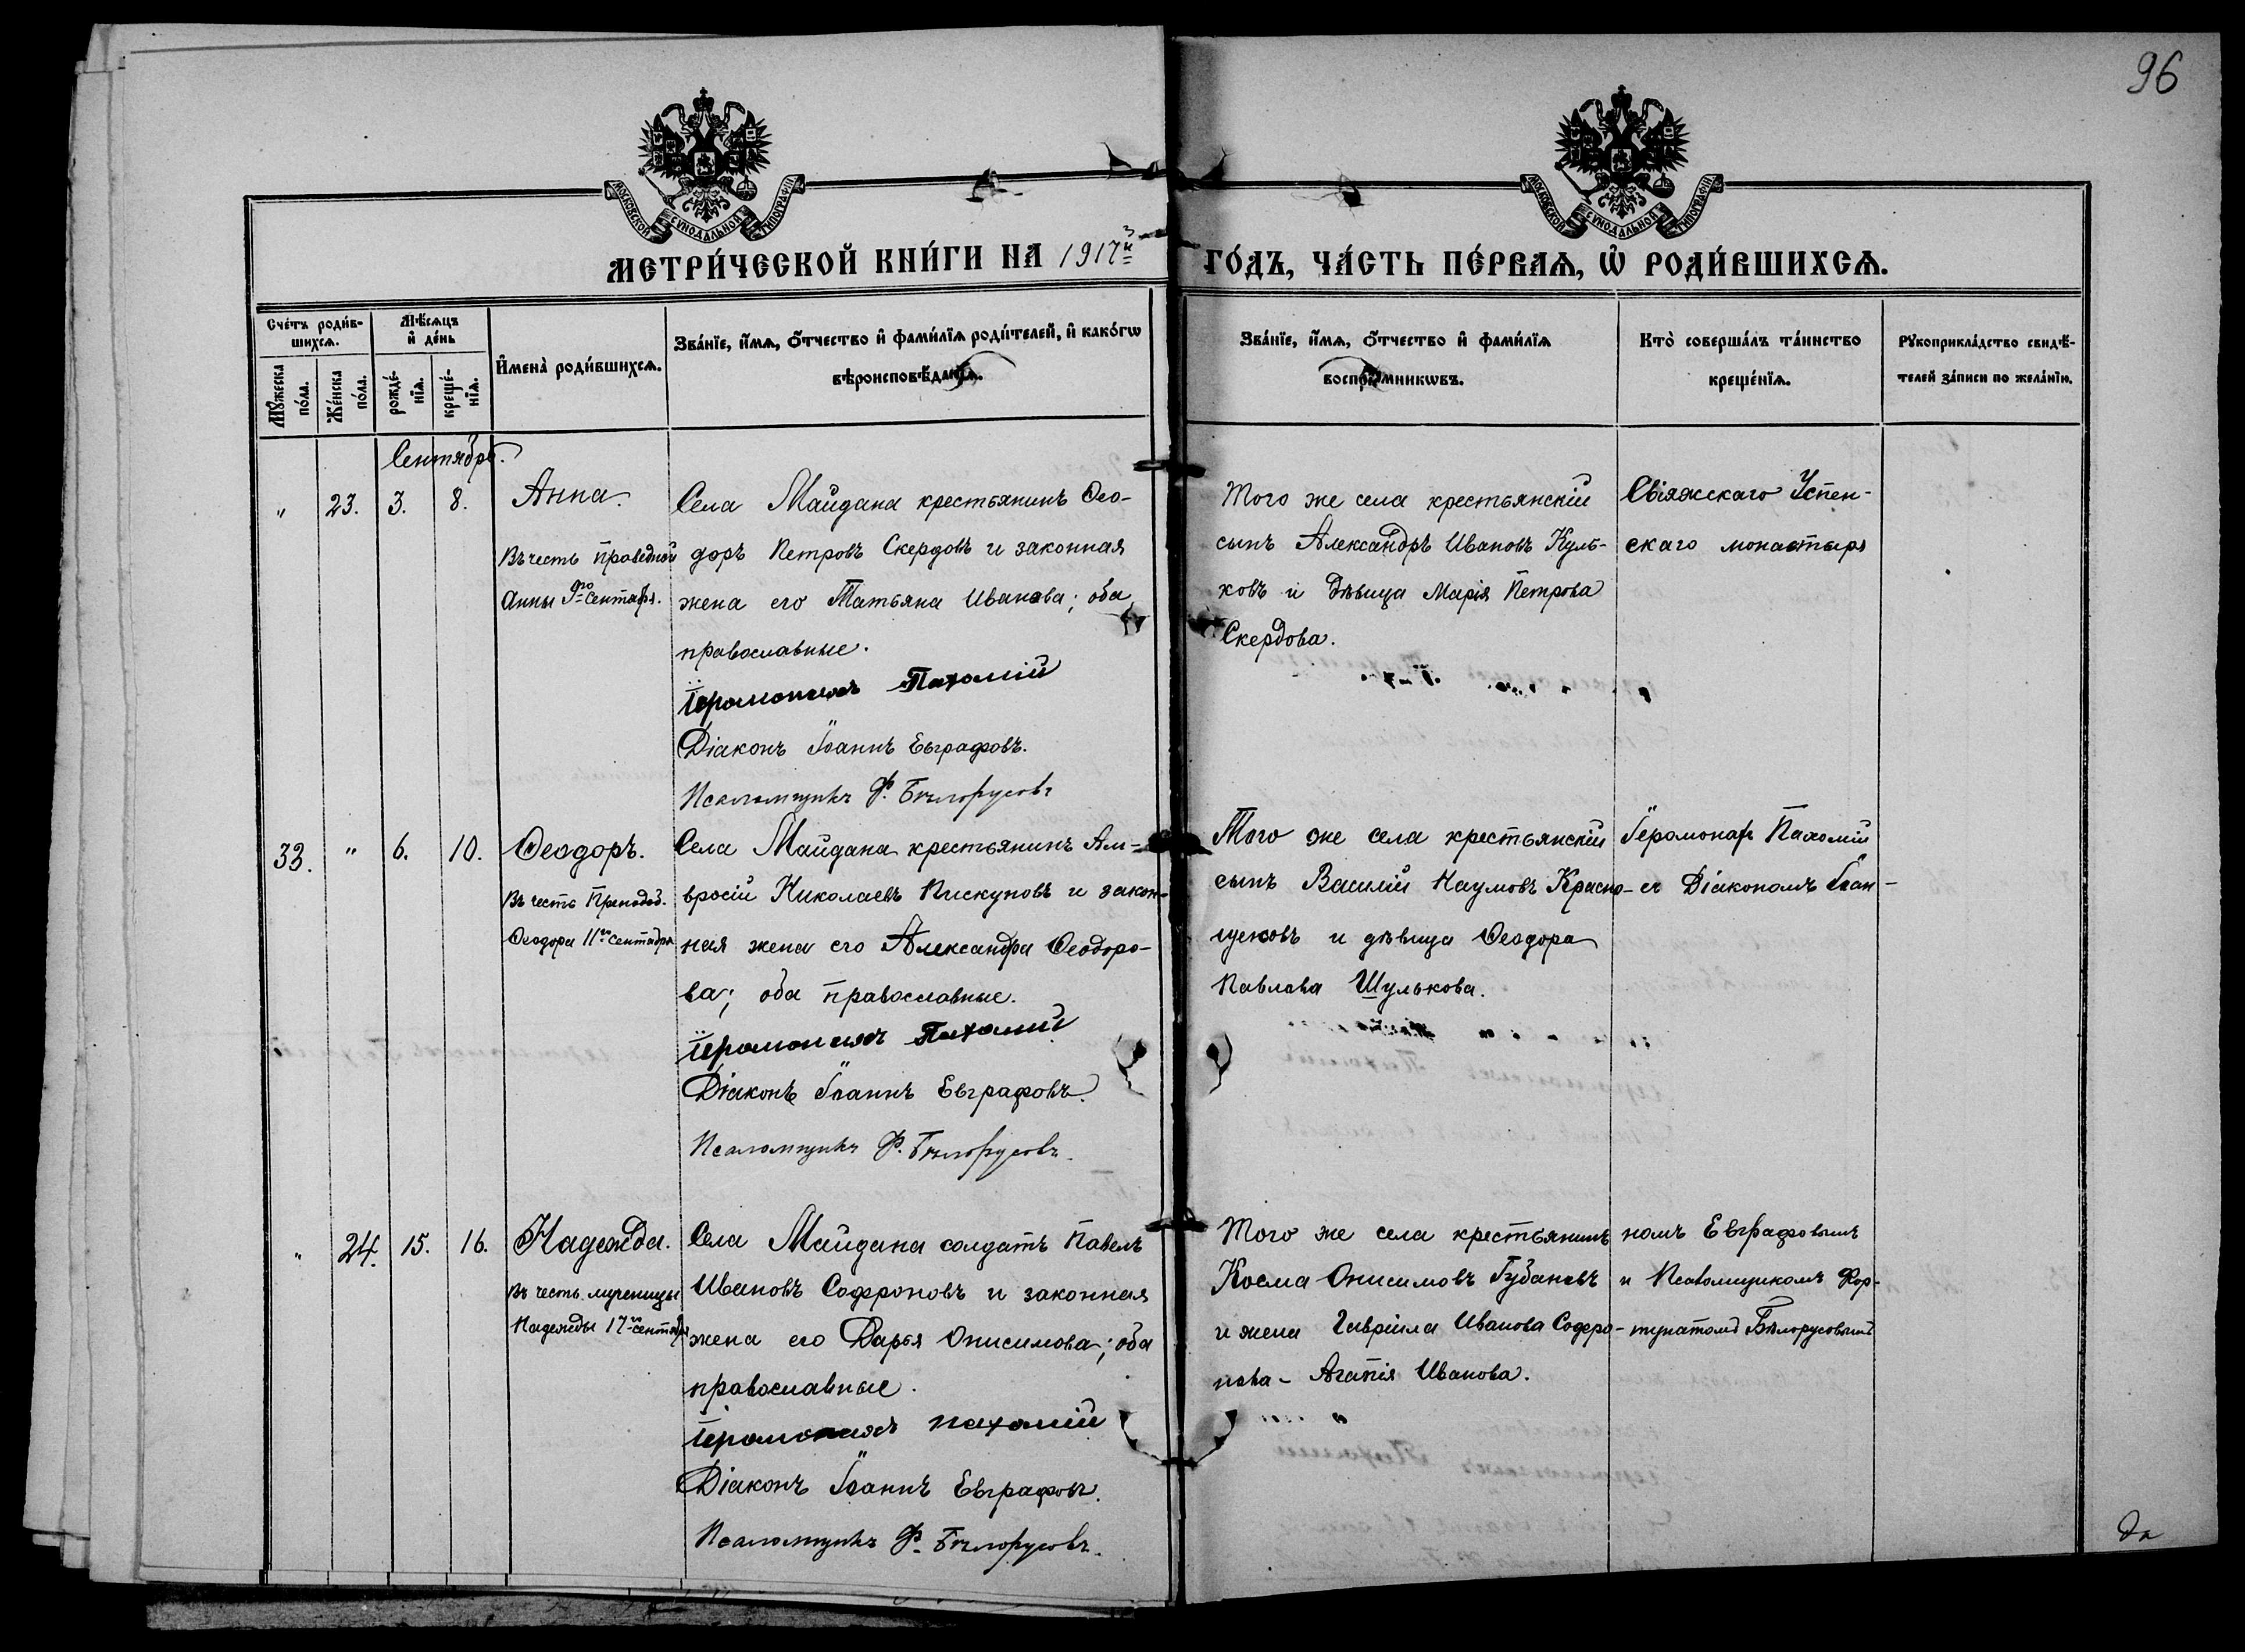 96
МОСКОВСКОЙ СУНОДАЛЬНОЙ ТИПОГРАФІИ
МОСКОВСКОЙ СУНОДАЛЬНОЙ ТИПОГРАФІИ
МЕТРИ́ЧЕСКОЙ КНИ́ГИ НА 1917й
ГО́ДЪ, ЧА́СТЬ ПЕ́РВАѦ, Ѽ РОДИ́ВШИХСѦ.
Сче́тъ роди́в-
шихсѧ.
Мѣ́сѧцъ
и҆ де́нь
Мꙋ́жеска
по́ла.
Же́нска
по́ла.
рожде́-
нїѧ.
креще́-
нїѧ.
И҆мена̀ роди́вшихсѧ.
Зва́нїе, и҆́мѧ, ѻ҆́тчество и҆ фами́лїѧ роди́телей, и҆ како́гѡ
вѣроисповѣ́данїѧ.
Зва́нїе, и҆́мѧ, ѻ҆́тчество и҆ фами́лїѧ
воспрїе́мникѡвъ.
Кто̀ соверша́лъ та́инство
креще́нїѧ.
Рꙋкоприкла́дство свидѣ́-
телей за́писи по жела́нїю.
Сентябрь.
" 23. 3. 8. Анна.
Въ честь праведной
Анны 9го сентябр.
Села Майдана крестьянинъ Ѳео-
доръ Петровъ Скердовъ и законная
жена его Татьяна Иванова; оба
православные.
Іеромонахъ Пахомій
Діаконъ Іоаннъ Евграфовъ.
Псаломщикъ Ф. Бѣлорусовъ
Того же села крестьянскій
сынъ Александръ Ивановъ Куль-
ковъ и дѣвица Марія Петрова
Скердова.
Свіяжскаго Успен-
скаго монастыря
33. " 6. 10. Ѳеодоръ.
Въ честь Преподоб.
Ѳеодоры 11го сентября
Села Майдана крестьянинъ Ам-
вросій Николаевъ Пискуновъ и закон-
ная жена его Александра Ѳеодоро-
ва; оба православные.
Іеромонахъ Пахомій
Діаконъ Іоаннъ Евграфовъ.
Псаломщикъ Ф. Бѣлорусовъ.
Того же села крестьянскій
сынъ Василій Наумовъ Красно-
щековъ и дѣвица Ѳеодора
Павлова Шулькова.
Іеромонах Пахомій
съ Діакономъ Іоан-
" 24. 15. 16. Надежда.
Въ честь мученицы
Надежды 17го сентябр
Села Майдана солдатъ Павелъ
Ивановъ Софроновъ и законная
жена его Дарья Онисимова; оба
православные.
Іеромонахъ Пахомій
Діаконъ Іоаннъ Евграфовъ.
Псаломщикъ Ф. Бѣлорусовъ.
Того же села крестьянинъ
Косма Онисимовъ Губановъ
и жена Гавріила Иванова Софро-
нова - Агапія Иванова.
номъ Евграфовымъ
и Псаломщикомъ Фор-
тунатомъ Бѣлорусовымъ